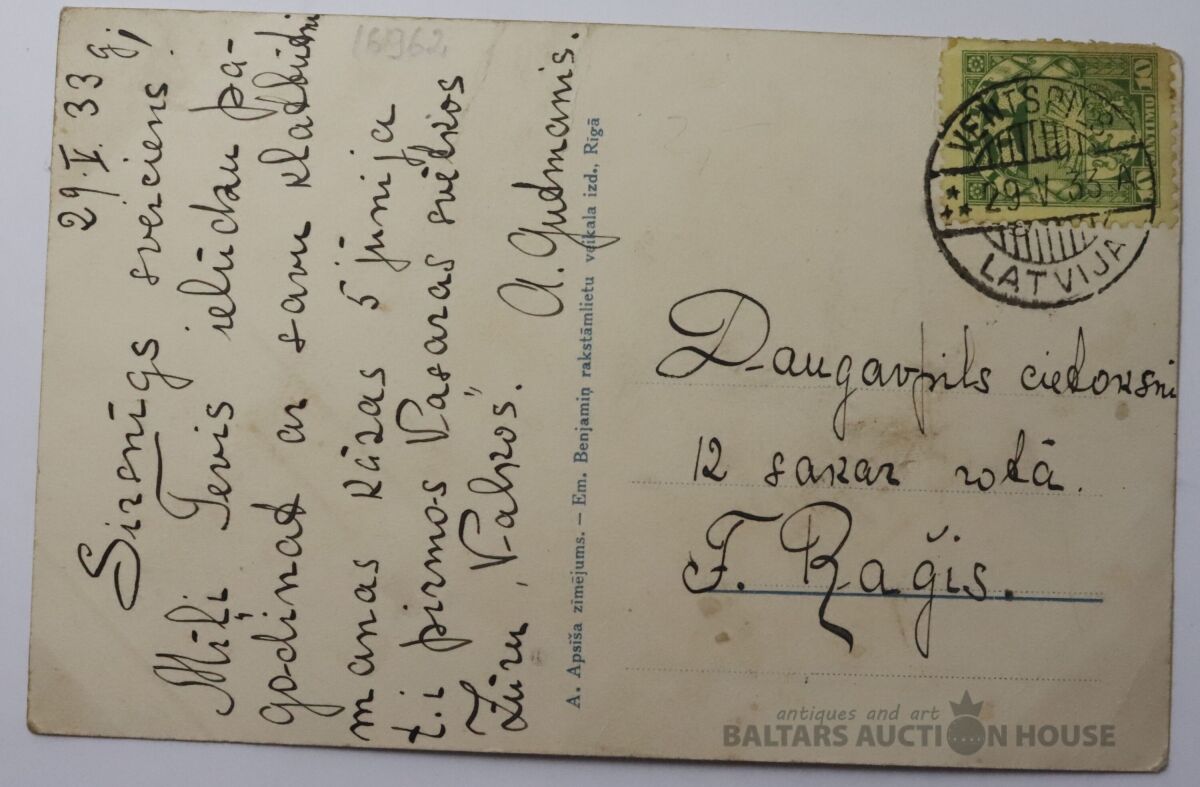 29.V.33 g,
Sirsnīgs sveiciens!
Mīļi Tevis ielūdzu pa-
godiņat ar savu klātbūtni
manas kāzas 5 jūnija
t.i pirmos Vasaras svētkos
Zūru, "Valkos".
A. Gudmanis.
16962
A. Apsīša zīmējums. — Em. Benjamiņ rakstāmlietu veikala izd., Rīgā
VENTSPILS
29 V 33 A
LATVIJA
Daugavpils cietoksni
12 sakar rotā.
F. Raģis.
antiques and art
BALTARS AUCTION HOUSE